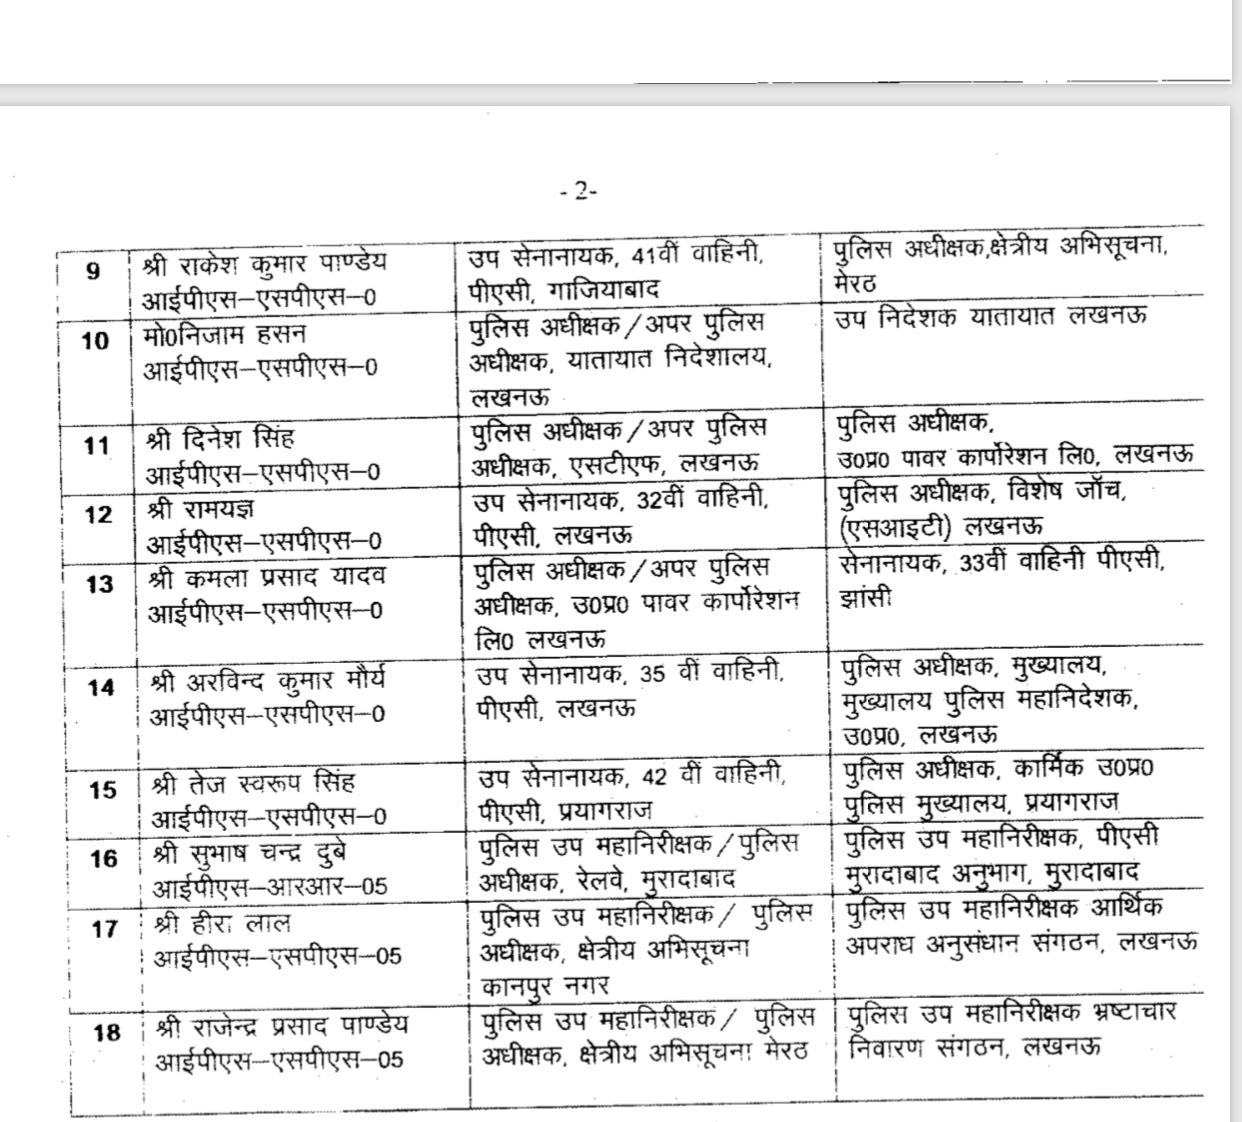 -2-
9
श्री राकेश कुमार पाण्डेय
आईपीएस–एसपीएस–0
उप सेनानायक, 41वीं वाहिनी,
पीएसी, गाजियाबाद
पुलिस अधीक्षक,क्षेत्रीय अभिसूचना,
मेरठ
10
मो0निजाम हसन
आईपीएस–एसपीएस–0
पुलिस अधीक्षक/अपर पुलिस
अधीक्षक, यातायात निदेशालय,
लखनऊ
उप निदेशक यातायात लखनऊ
11
श्री दिनेश सिंह
आईपीएस–एसपीएस–0
पुलिस अधीक्षक/अपर पुलिस
अधीक्षक, एसटीएफ, लखनऊ
पुलिस अधीक्षक,
उ0प्र0 पावर कार्पोरेशन लि0, लखनऊ
12
श्री रामयज्ञ
आईपीएस–एसपीएस–0
उप सेनानायक, 32वीं वाहिनी,
पीएसी, लखनऊ
पुलिस अधीक्षक, विशेष जॉच,
(एसआइटी) लखनऊ
13
श्री कमला प्रसाद यादव
आईपीएस–एसपीएस–0
पुलिस अधीक्षक/अपर पुलिस
अधीक्षक, उ0प्र0 पावर कार्पोरेशन
लि0 लखनऊ
सेनानायक, 33वीं वाहिनी पीएसी,
झांसी
14
श्री अरविन्द कुमार मौर्य
आईपीएस–एसपीएस–0
उप सेनानायक, 35 वीं वाहिनी,
पीएसी, लखनऊ
पुलिस अधीक्षक, मुख्यालय,
मुख्यालय पुलिस महानिदेशक,
उ0प्र0, लखनऊ
15
श्री तेज स्वरूप सिंह
आईपीएस–एसपीएस–0
उप सेनानायक, 42 वीं वाहिनी,
पीएसी, प्रयागराज
पुलिस अधीक्षक, कार्मिक उ0प्र0
पुलिस मुख्यालय, प्रयागराज
16
श्री सुभाष चन्द्र दुबे
आईपीएस–आरआर–05
पुलिस उप महानिरीक्षक/पुलिस
अधीक्षक, रेलवे, मुरादाबाद
पुलिस उप महानिरीक्षक, पीएसी
मुरादाबाद अनुभाग, मुरादाबाद
17
श्री हीरा लाल
आईपीएस–एसपीएस–05
पुलिस उप महानिरीक्षक/ पुलिस
अधीक्षक, क्षेत्रीय अभिसूचना
कानपुर नगर
पुलिस उप महानिरीक्षक आर्थिक
अपराध अनुसंधान संगठन, लखनऊ
18
श्री राजेन्द्र प्रसाद पाण्डेय
आईपीएस–एसपीएस–05
पुलिस उप महानिरीक्षक/ पुलिस
अधीक्षक, क्षेत्रीय अभिसूचना मेरठ
पुलिस उप महानिरीक्षक भ्रष्टाचार
निवारण संगठन, लखनऊ